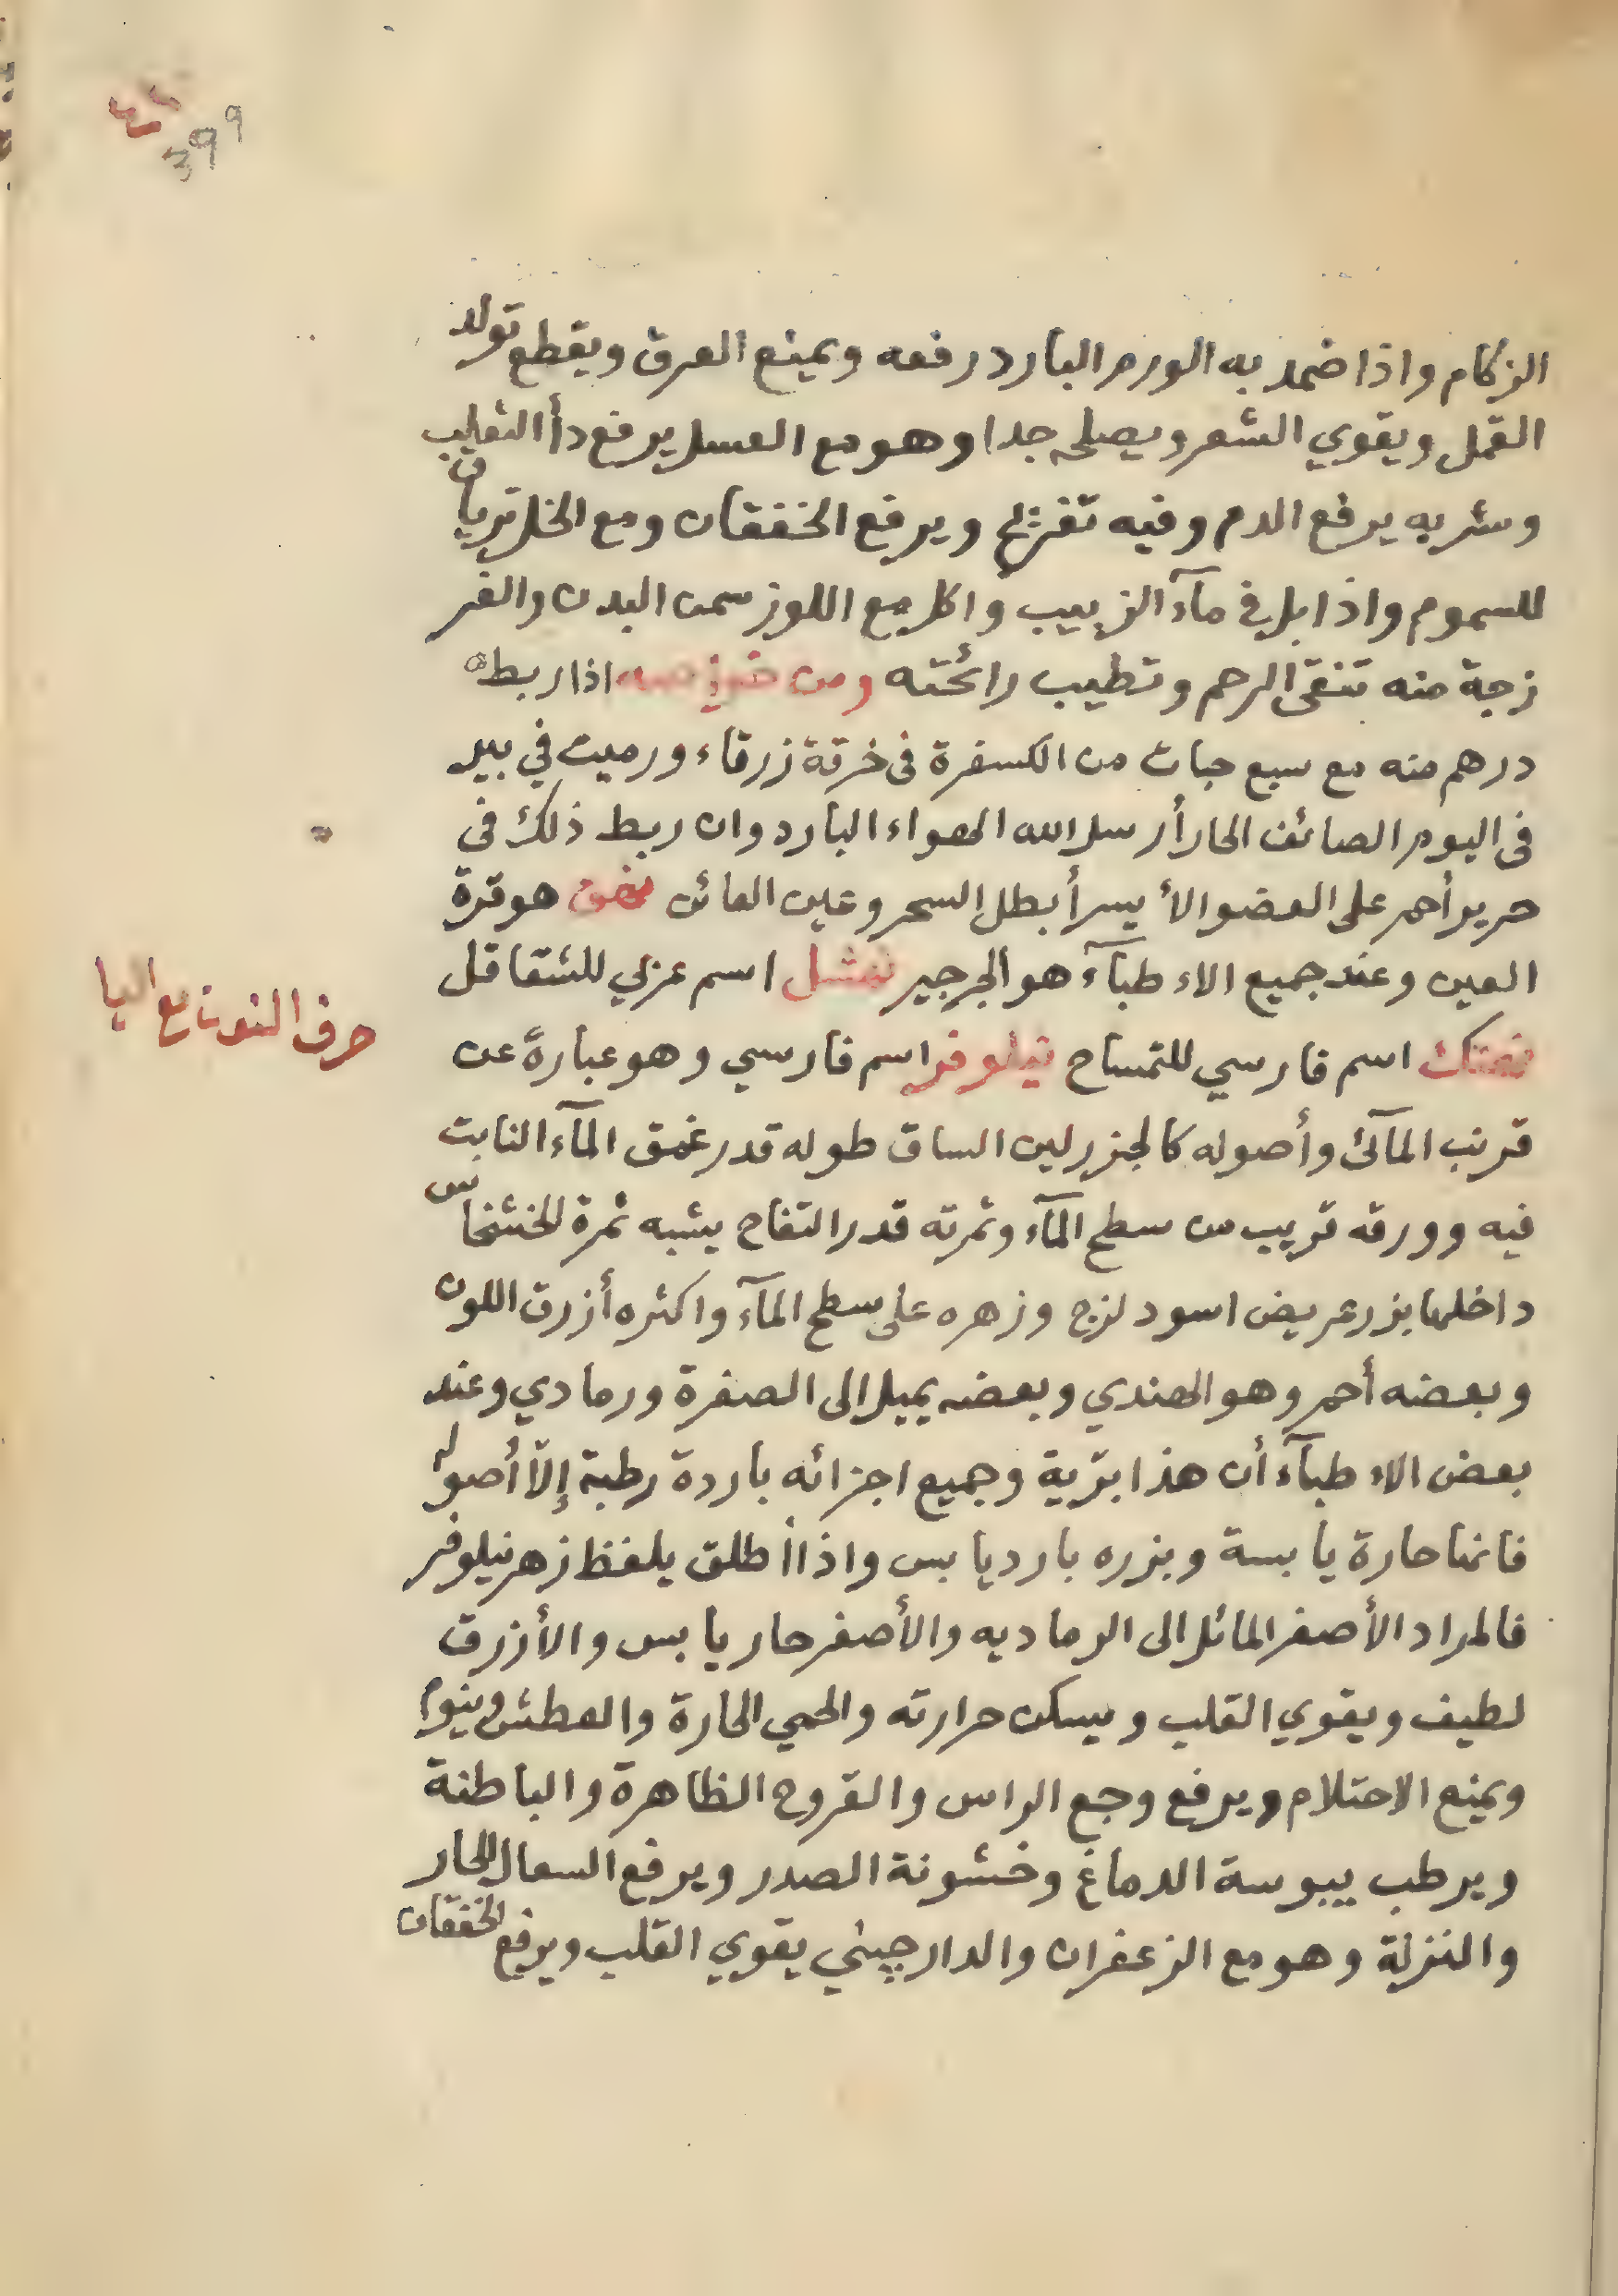 399
الزكام واذا ضمد به الورم البارد رفعه ويمنع العرق ويقطع تولد
القمل ويقوي الشعر ويصلحه جدا وهو مع العسل يرفع دأ الثعلب
وشربه يرفع الدم وفيه تفريح ويرفع الخفقان ومع الخل ترياق
للسموم واذا بل في مآء الزبيب واكل مع اللوز سمن البدن والفر
زجة منه تنقى الرحم وتطيب رائحته ومن اذا ربط
درهم منه مع سبع حبات من الكسفرة فى خرقة زرقاء ورميت في بير
فى اليوم الصائف الحار أرسل الله الهواء البارد وان ربط ذلك فى
حرير أحمر على العضو الأيسر أبطل السحر وعين العائن هو قرة
العين وعند جميع الاءطبآء هو الجرجير نهشل اسم عربي للشقاقل
نهنك اسم فارسي للتمساح نيلوفر اسم فارسي وهو عبارة عن
قرنب المآئ وأصوله كالجزر لين الساق طوله قدر عمق المآء النابت
فيه وورقه قريب من سطح المآء وثمرته قدر التفاح يشبه ثمرة الخشخاش
داخلها بزر عريض اسود لزج وزهره على سطح المآء واكثره أزرق اللون
وبعضه أحمر وهو الهندي وبعضه يميل الى الصفرة ورمادي وعند
بعض الاءطبآء أن هذا برّية وجميع اجزائه باردة رطبة إلّا أصوله
فانها حارة يابسة وبزره بارد يابس واذا أطلق بلفظ زهر نيلوفر
فالمراد الأصفر المائل الى الرماديه والأصفر حار يابس والأزرق
لطيف ويقوي القلب ويسكن حرارته والحمي الحارة والعطش وينوم
ويمنع الاحتلام ويرفع وجع الراس والقروح الظاهرة والباطنة
ويرطب يبوسة الدماغ وخشونة الصدر ويرفع السعال الحار
والنزلة وهو مع الزعفران والدارچيني يقوي القلب ويرفع الخفقان
حرف النون مع اليا